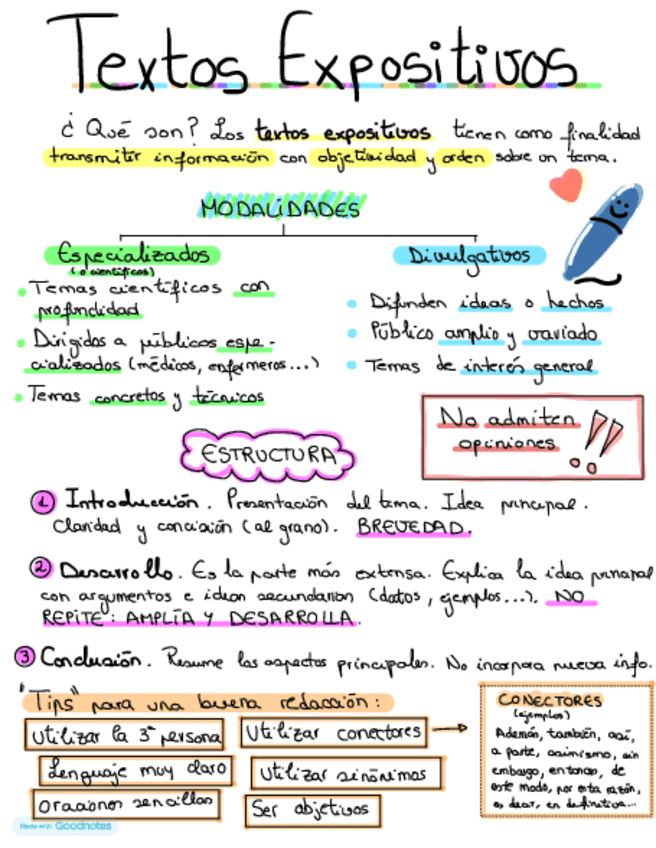 Textos Expositivos
¿Qué son? Los textos expositivos tienen como finalidad
transmitir información con objetividad y orden sobre un tema.
MODALIDADES
Especializados
(o científicos)
• Temas científicos con
profundidad
• Dirigidos a públicos espe-
cializados (médicos, enfermeros...)
• Temas concretos y técnicos
Divulgativos
• Difunden ideas o hechos
• Público amplio y variado
• Temas de interés general
No admiten
opiniones !!
ESTRUCTURA
1 Introducción. Presentación del tema. Idea principal.
Claridad y concisión (al grano). BREVEDAD.
2 Desarrollo. Es la parte más extensa. Explica la idea principal
con argumentos e ideas secundarias (datos, ejemplos...). NO
REPITE: AMPLÍA Y DESARROLLA.
3 Conclusión. Resume los aspectos principales. No incorpora nueva info.
"Tips" para una buena redacción:
Utilizar la 3ª persona
Utilizar conectores →
Lenguaje muy claro
Utilizar sinónimos
Oraciones sencillas
Ser objetivos
CONECTORES
(ejemplos)
Además, también, así,
a parte, asimismo, sin
embargo, entonces, de
este modo, por esta razón,
es decir, en definitiva...
Made with Goodnotes